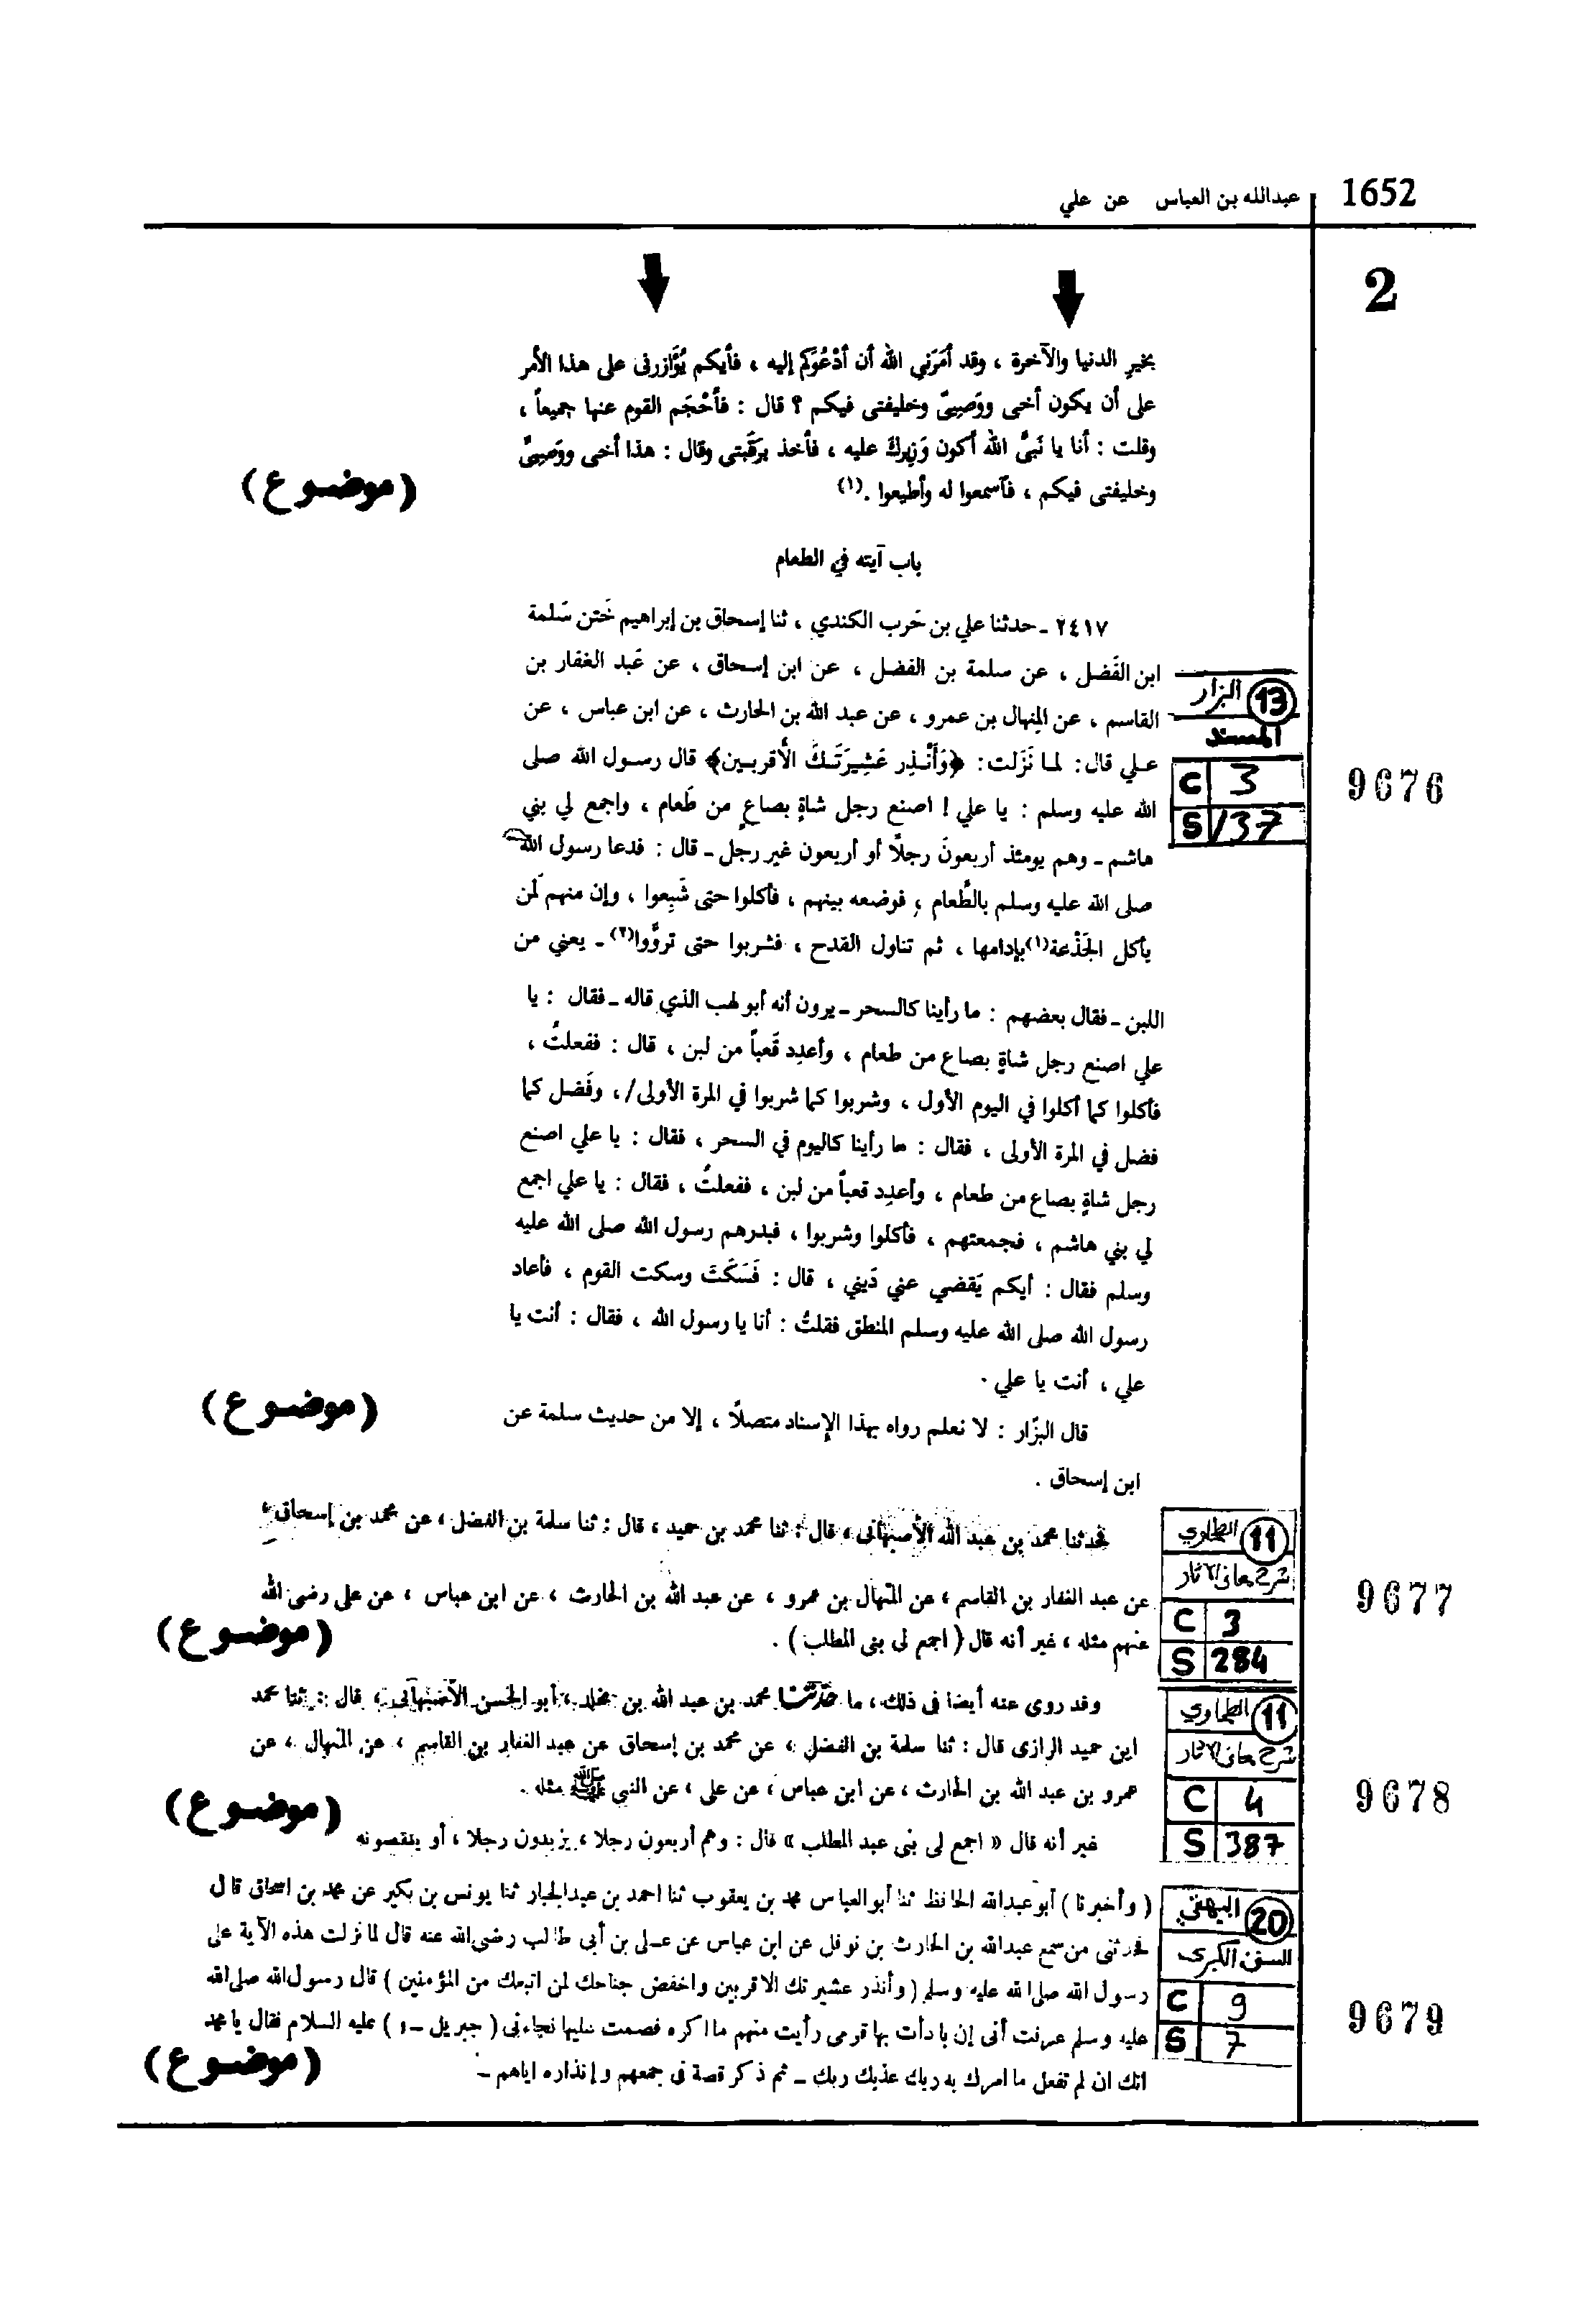 1652
عبدالله بن العباس عن علي
2
بخيرِ الدنيا والآخرة ، وقد أمَرَني الله أن أدْعُوَكم إليه ، فأيكم يُؤَازرنى على هذا الأمر
على أن يكون أخى ووَصِيىّ وخليفتى فيكم ؟ قال : فأحْجَم القوم عنها جميعاً ،
وقلت : أنا يا نَبىَّ الله أكون وَزيرك عليه ، فأخذ برَقَبتى وقال : هذا أخى ووَصِيىّ
وخليفتى فيكم ، فآسمعوا له وأطيعوا .(١)
(موضوع)
باب آيته في الطعام
٢٤١٧ ـ حدثنا علي بن حَرب الكندي ، ثنا إسحاق بن إبراهيم خَتن سَلمة
ابن الفَضل ، عن سلمة بن الفضل ، عن ابن إسحاق ، عن عَبد الغفار بن
القاسم ، عن المِنهال بن عمرو ، عن عبد الله بن الحارث ، عن ابن عباس ، عن
علي قال : لما نَزَلت : ﴿وَأَنْذِر عَشِيرَتَكَ الأقربين﴾ قال رسول الله صلى
الله عليه وسلم : يا علي ! اصنع رجل شاةٍ بصاعٍ من طَعام ، واجمع لي بني
هاشم ـ وهم يومئذ أربعونَ رجلًا أو أربعون غير رجل ـ قال : فدعا رسول الله
صلى الله عليه وسلم بالطَّعام ، فوضعه بينهم ، فأكلوا حتى شَبِعوا ، وإن منهم لَمن
يأكل الجَذْعة(١) بإدامها ، ثم تناول القدح ، فشربوا حتى تروَّوا(٢) ـ يعني من
اللبن ـ فقال بعضهم : ما رأينا كالسحر ـ يرون أنه أبو لهب الذي قاله ـ فقال : يا
علي اصنع رجل شاةٍ بصاع من طعام ، وأعدِد قَعباً من لبن ، قال : ففعلتُ ،
فأكلوا كما أكلوا في اليوم الأول ، وشربوا كما شربوا في المرة الأولى/ ، وفَضل كما
فضل في المرة الأولى ، فقال : ما رأينا كاليوم في السحر ، فقال : يا علي اصنع
رجل شاةٍ بصاع من طعام ، وأعدِد قعباً من لبن ، ففعلتُ ، فقال : يا علي اجمع
لي بني هاشم ، فجمعتهم ، فأكلوا وشربوا ، فبدرهم رسول الله صلى الله عليه
وسلم فقال : أيكم يَقضي عني دَيني ، قال : فَسَكَتَ وسكت القوم ، فأعاد
رسول الله صلى الله عليه وسلم المنطق فقلتُ : أنا يا رسول الله ، فقال : أنت يا
علي ، أنت يا علي .
(موضوع)
قال البزّار : لا نعلم رواه بهذا الإسناد متصلًا ، إلا من حديث سلمة عن
ابن إسحاق .
13 البزار
المسند
C 3
S 137
9676
فحدثنا محمد بن عبد الله الأصبهانى ، قال : ثنا محمد بن حميد ، قال : ثنا سلمة بن الفضل ، عن محمد بن إسحاق ،
عن عبد الغفار بن القاسم ، عن المنهال بن عمرو ، عن عبد الله بن الحارث ، عن ابن عباس ، عن على رضى الله
عنهم مثله ، غير أنه قال ( اجمع لى بنى المطلب ) .
(موضوع)
11 الطحاوي
شرح معاني الآثار
C 3
S 284
9677
وقد روى عنه أيضا فى ذلك ، ما حدثنا محمد بن عبد الله بن مخلد ، أبو الحسن الأصبهانى ، قال : ثنا محمد
ابن حميد الرازى قال : ثنا سلمة بن الفضل ، عن محمد بن إسحاق عن عبد الغفار بن القاسم ، عن المنهال ، عن
عمرو بن عبد الله بن الحارث ، عن ابن عباس ، عن على ، عن النبي ﷺ مثله .
غير أنه قال « اجمع لى بنى عبد المطلب » قال : وهم أربعون رجلا ، يزيدون رجلا ، أو ينقصونه
(موضوع)
11 الطحاوي
شرح معاني الآثار
C 4
S 387
9678
( وأخبرنا ) أبو عبدالله الحافظ ثنا أبو العباس محمد بن يعقوب ثنا احمد بن عبدالجبار ثنا يونس بن بكير عن محمد بن اسحاق قال
فحدثنى من سمع عبدالله بن الحارث بن نوفل عن ابن عباس عن على بن أبى طالب رضى الله عنه قال لما نزلت هذه الآية على
رسول الله صلى الله عليه وسلم ( وأنذر عشيرتك الاقربين واخفض جناحك لمن اتبعك من المؤمنين ) قال رسول الله صلى الله
عليه وسلم عرفت أنى إن بادأت بها قومى رأيت منهم ما اكره فصمت عليها فجاءنى ( جبريل ـ و ) عليه السلام فقال يا محمد
انك ان لم تفعل ما امرك به ربك عذبك ربك ـ ثم ذكر قصة فى جمعهم وإنذاره اياهم ـ
(موضوع)
20 البيهقي
السنن الكبرى
C 9
S 7
9679